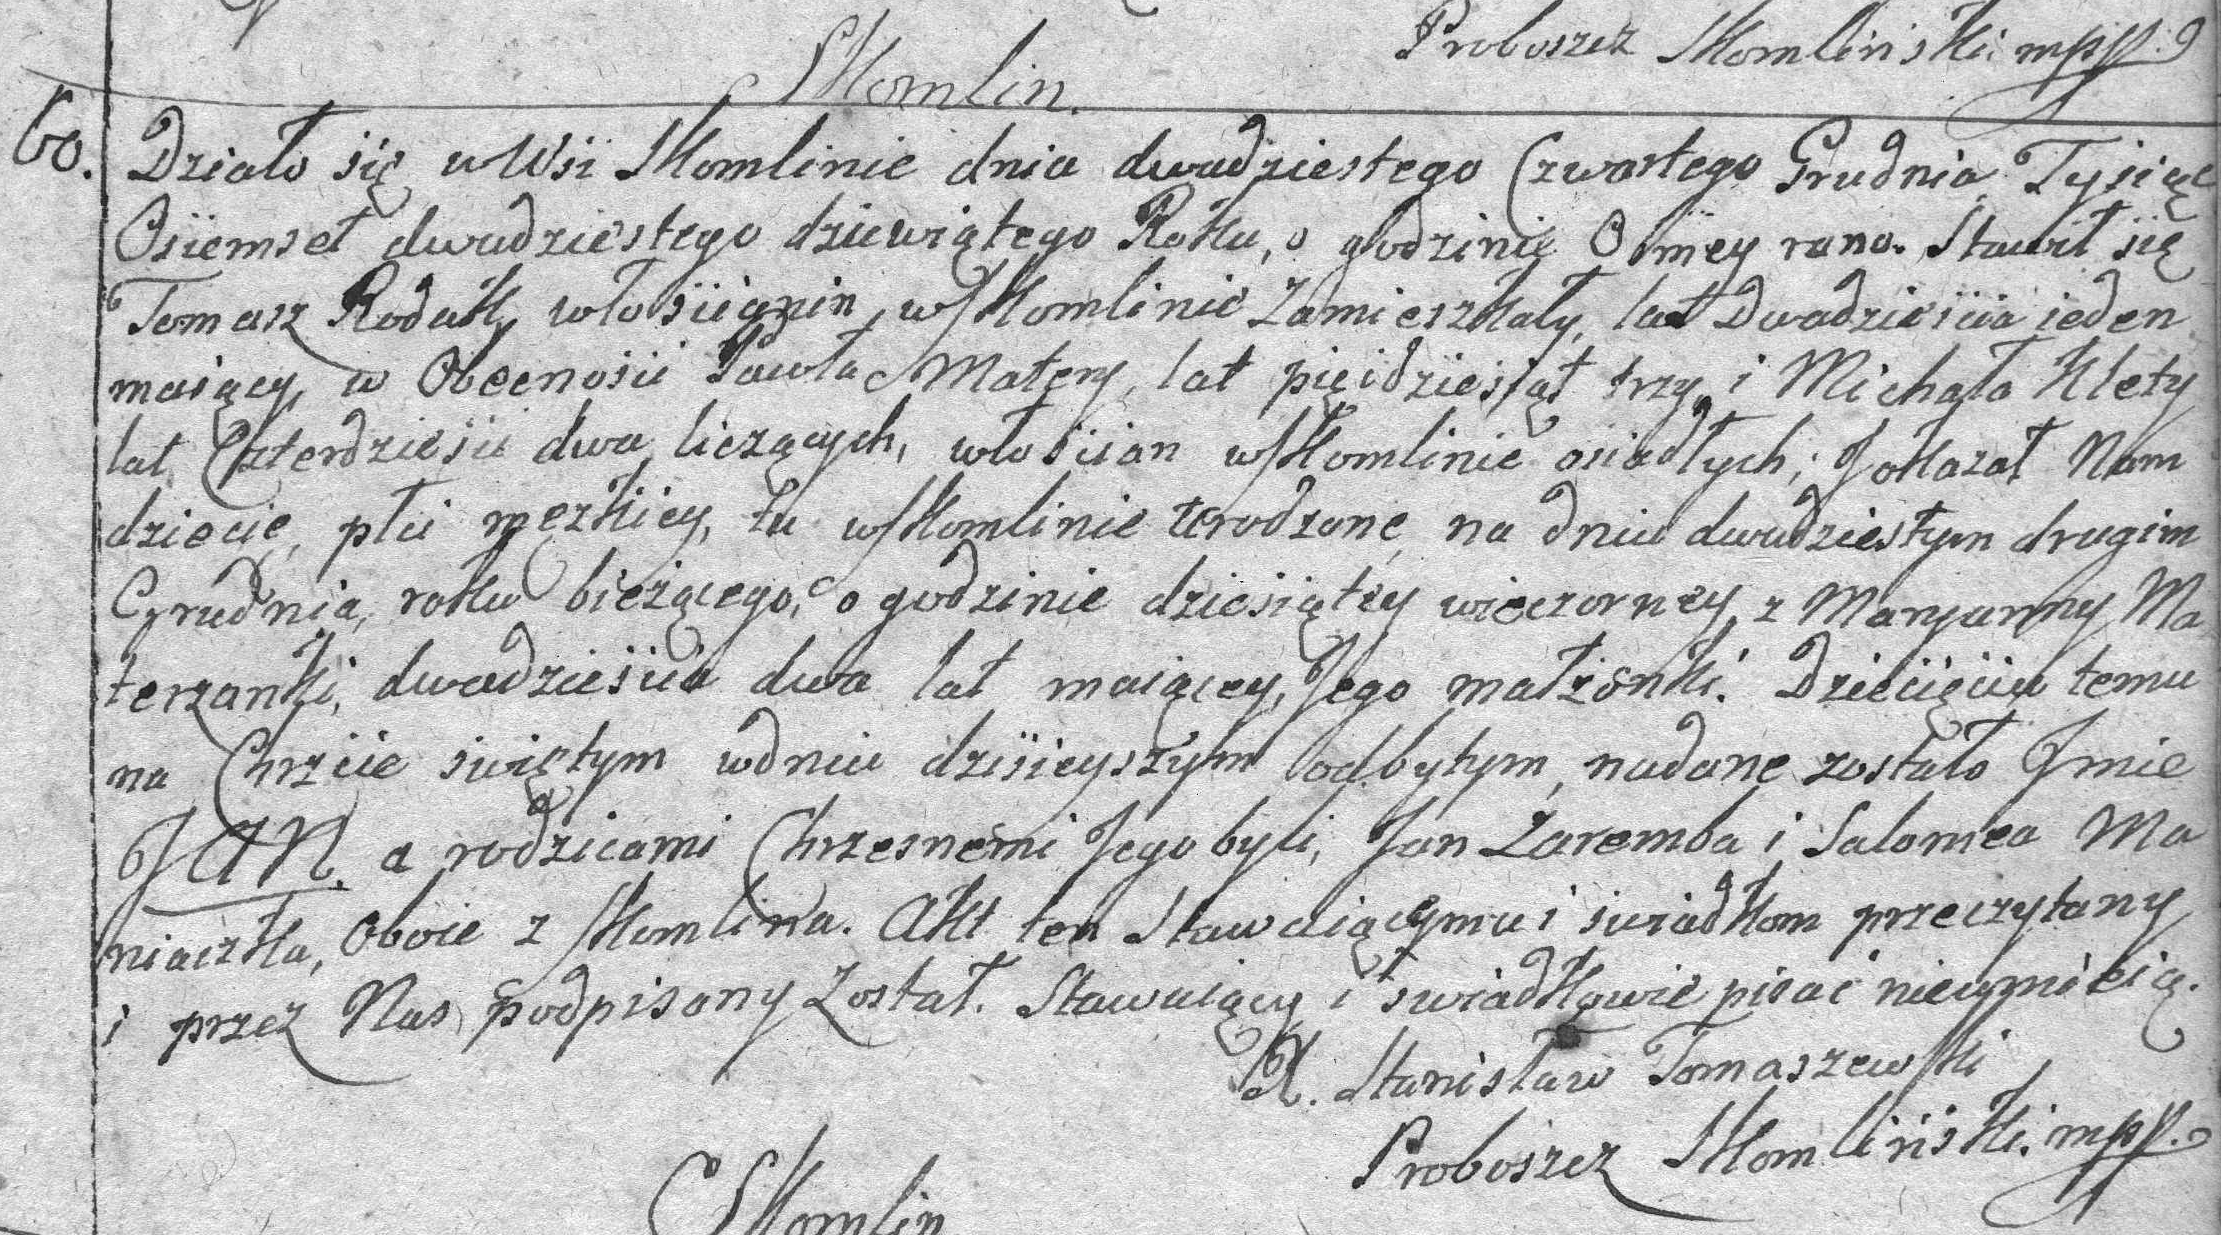 Proboszcz Skomliński mpp
Skomlin.
60. Działo się w Wsi Skomlinie dnia dwudziestego Czwartego Grudnia Tysiąc
Osiemset dwudziestego dziewiątego Roku, o godzinie Osmey rano. Stawił się
Tomasz Rodak, włościanin w Skomlinie Zamieszkały, lat Dwadzieścia ieden
maiący, w Obecności Pawła Matery, lat pięćdziesiąt trzy, i Michała Klety
lat Czterdzieści dwa liczących, włościan w Skomlinie osiadłych; Jokazał Nam
dziecie, płci męzkiey, tu w Skomlinie urodzone, na dniu dwudziestym drugim
Grudnia, roku bieżącego, o godzinie dziesiątey wieczorney, z Maryanny Ma
terzanki, dwadzieścia dwa lat maiącey, Jego małżonki. Dziecięciu temu
na Chrzcie swiętym w dniu dzisieyszym odbytym, nadane zostało Jmie
JAN. a rodzicami Chrzesnemi Jego byli, Jan Zaremba i Salomea Ma
niaczka, Oboie z Skomlina. Akt ten Stawaiącymu i swiadkom przeczytany
i przez Nas podpisany Został. Stawaiący i swiadkowie pisać nieumieią.
X. Stanisław Tomaszewski
Proboszcz Skomliński. mpp.
Skomlin